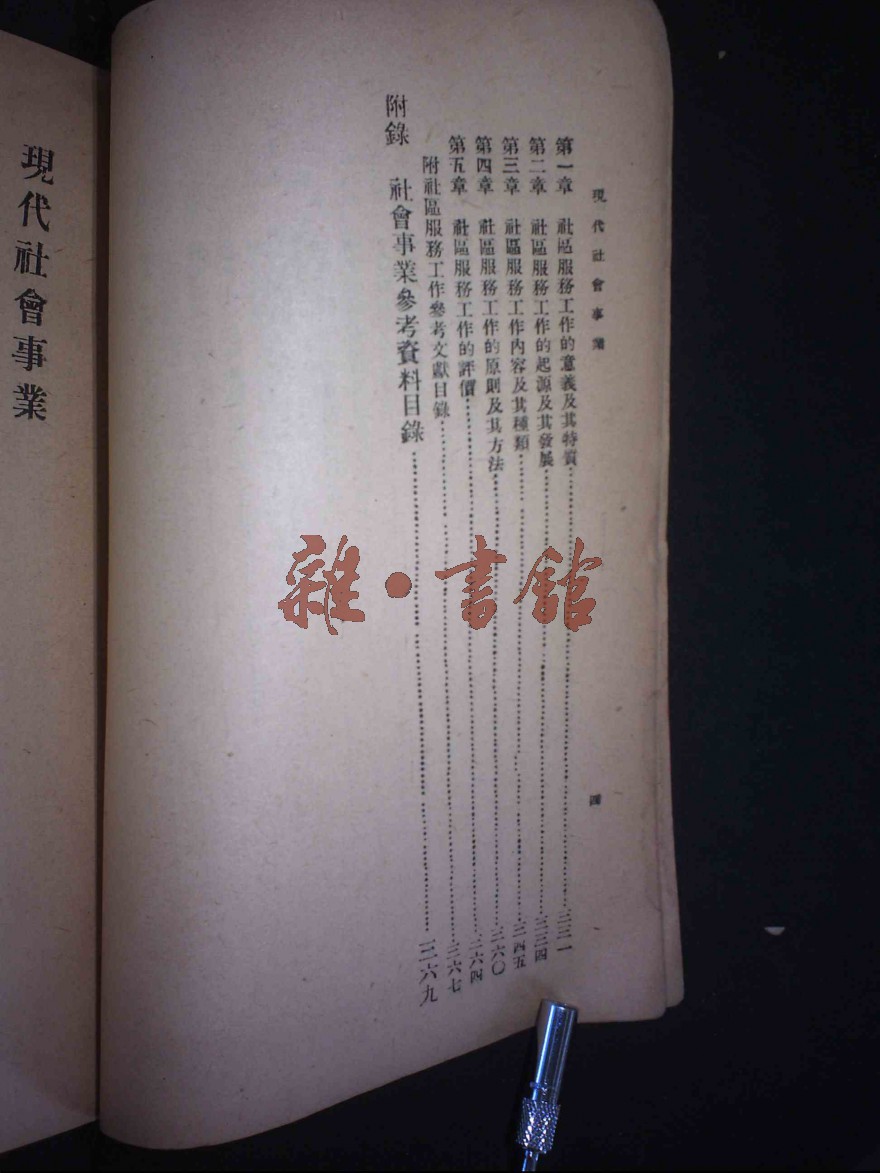 現代社會事業
四
第一章 社區服務工作的意義及其特質……三三一
第二章 社區服務工作的起源及其發展……三三四
第三章 社區服務工作內容及其種類……三四五
第四章 社區服務工作的原則及其方法……三六〇
第五章 社區服務工作的評價……三六四
附社區服務工作參考文獻目錄……三六七
附錄 社會事業參考資料目錄……三六九
現代社會事業
雜·書館